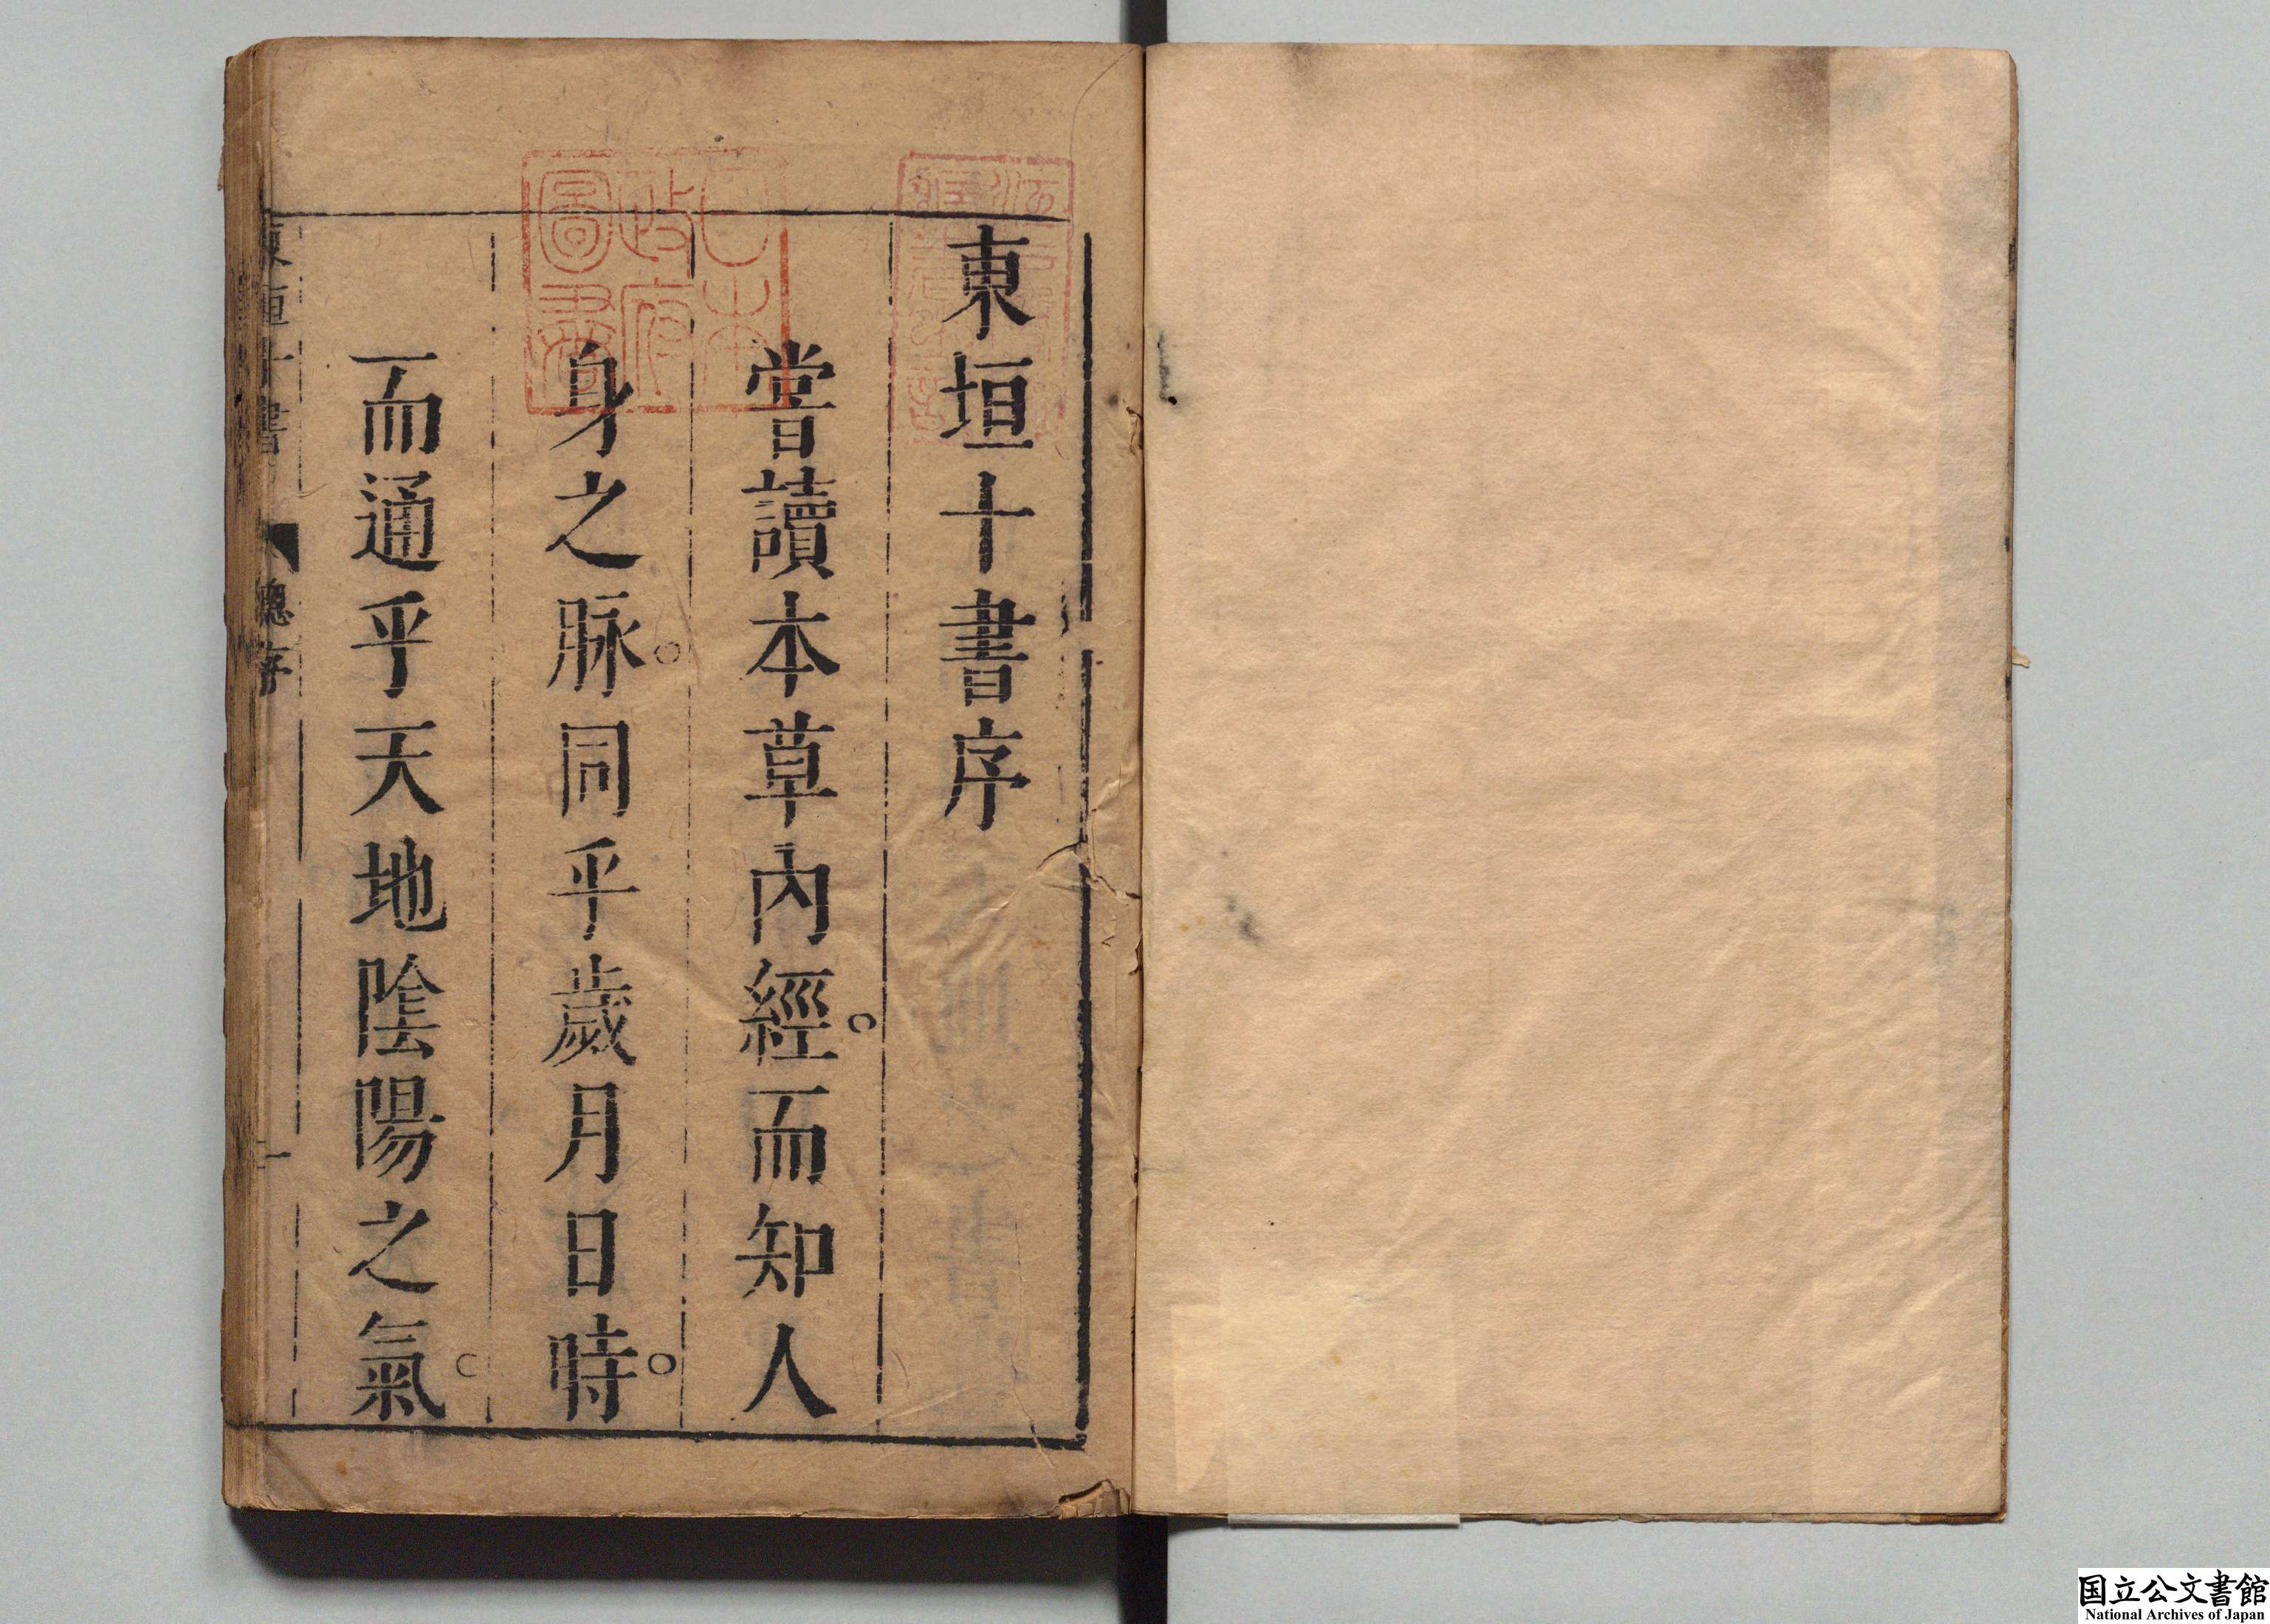 東垣十書序
嘗讀本草內經而知人
身之脉同乎歲月日時
而通乎天地陰陽之氣
東垣十書 總序 一
日本政府圖書
国立公文書館
National Archives of Japan